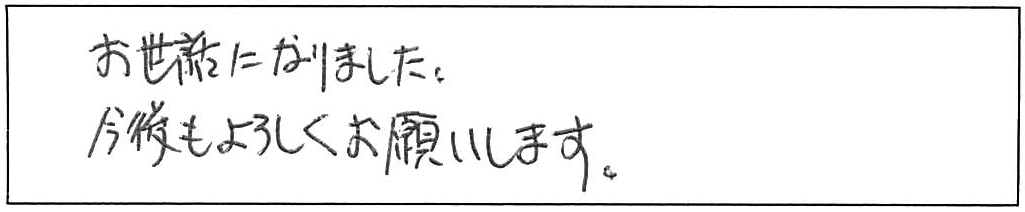 お世話になりました。
今後もよろしくお願いします。